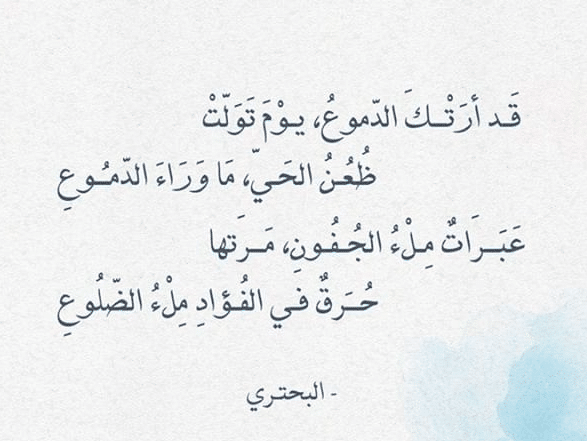 قَد أرَتْكَ الدّموعُ، يوْمَ تَوَلّتْ
ظُعُنُ الحَيّ، مَا وَرَاءَ الدّمُوعِ
عَبَرَاتٌ مِلْءُ الجُفُونِ، مَرَتها
حُرَقٌ في الفُؤادِ مِلْءُ الضّلُوعِ
- البحتري